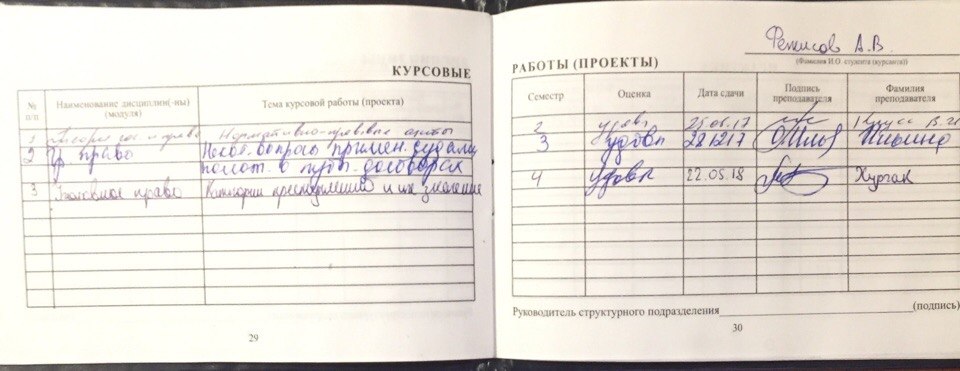 КУРСОВЫЕ
№ п/п
Наименование дисциплин(-ны) (модуля)
Тема курсовой работы (проекта)
1 Теория гос и права Нормативно-правовые акты
2 Гр право Некот. вопросы примен. судами
полож. о публ. договорах
3 Уголовное право Категории преступлений и их значение
29
А.В.
(Фамилия И.О. студента (курсанта))
РАБОТЫ (ПРОЕКТЫ)
Семестр
Оценка
Дата сдачи
Подпись преподавателя
Фамилия преподавателя
2 удовл 25.06.17
3 удовл 281217
4 удовл 22.05.18
Руководитель структурного подразделения (подпись)
30